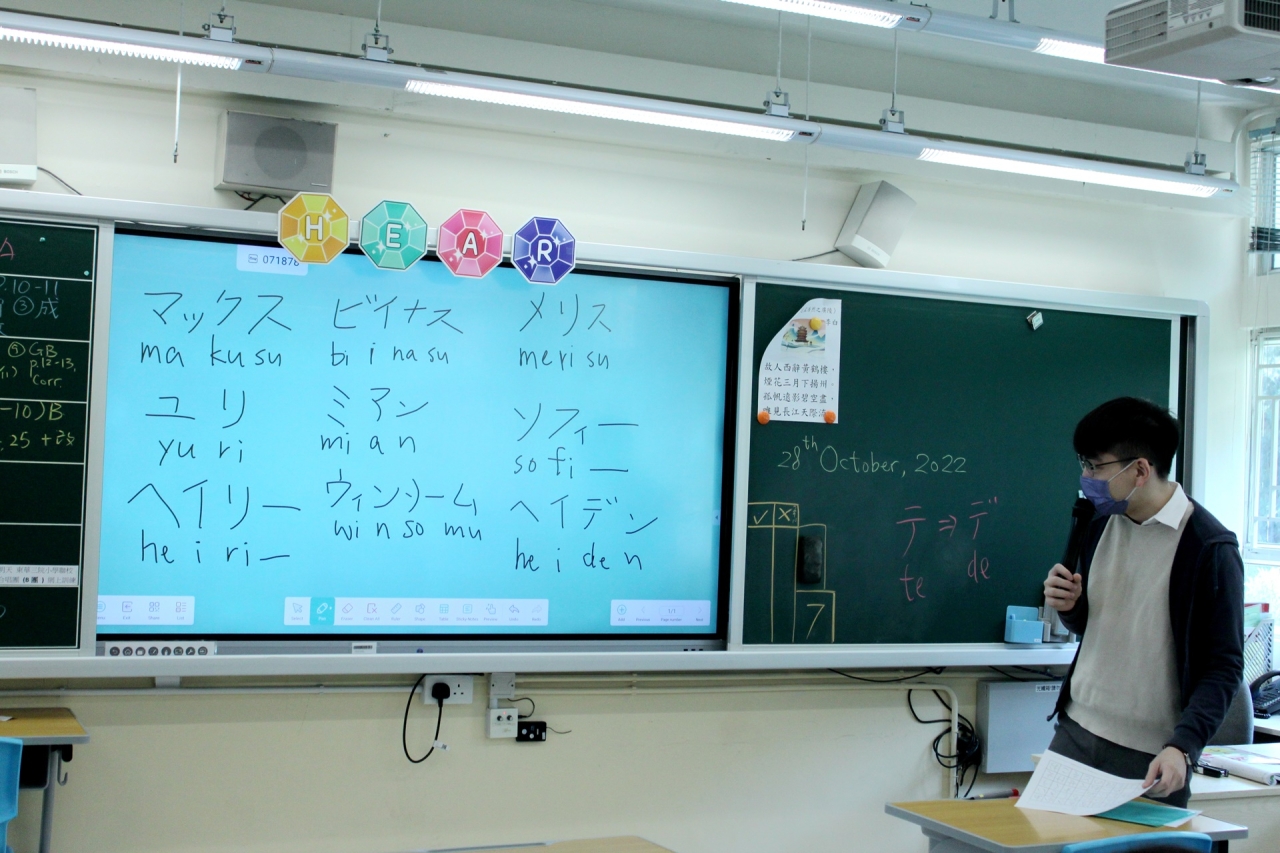 H E A R
071876
マックス ビイナス メリス
ma ku su bi i na su me ri su
ユリ ミアン ソフィー
yu ri mi a n so fi ー
ヘイリー ウィンソーム ヘイデン
he i ri ー wi n so mu he i de n
A
.10-11
③成
④GB
p.12-13,
Corr.
-10)B
.25
李白
故人西辭黃鶴樓，
煙花三月下揚州。
孤帆遠影碧空盡，
見長江天際
28th October, 2022
テ ⇒ デ
te de
✓ X
7